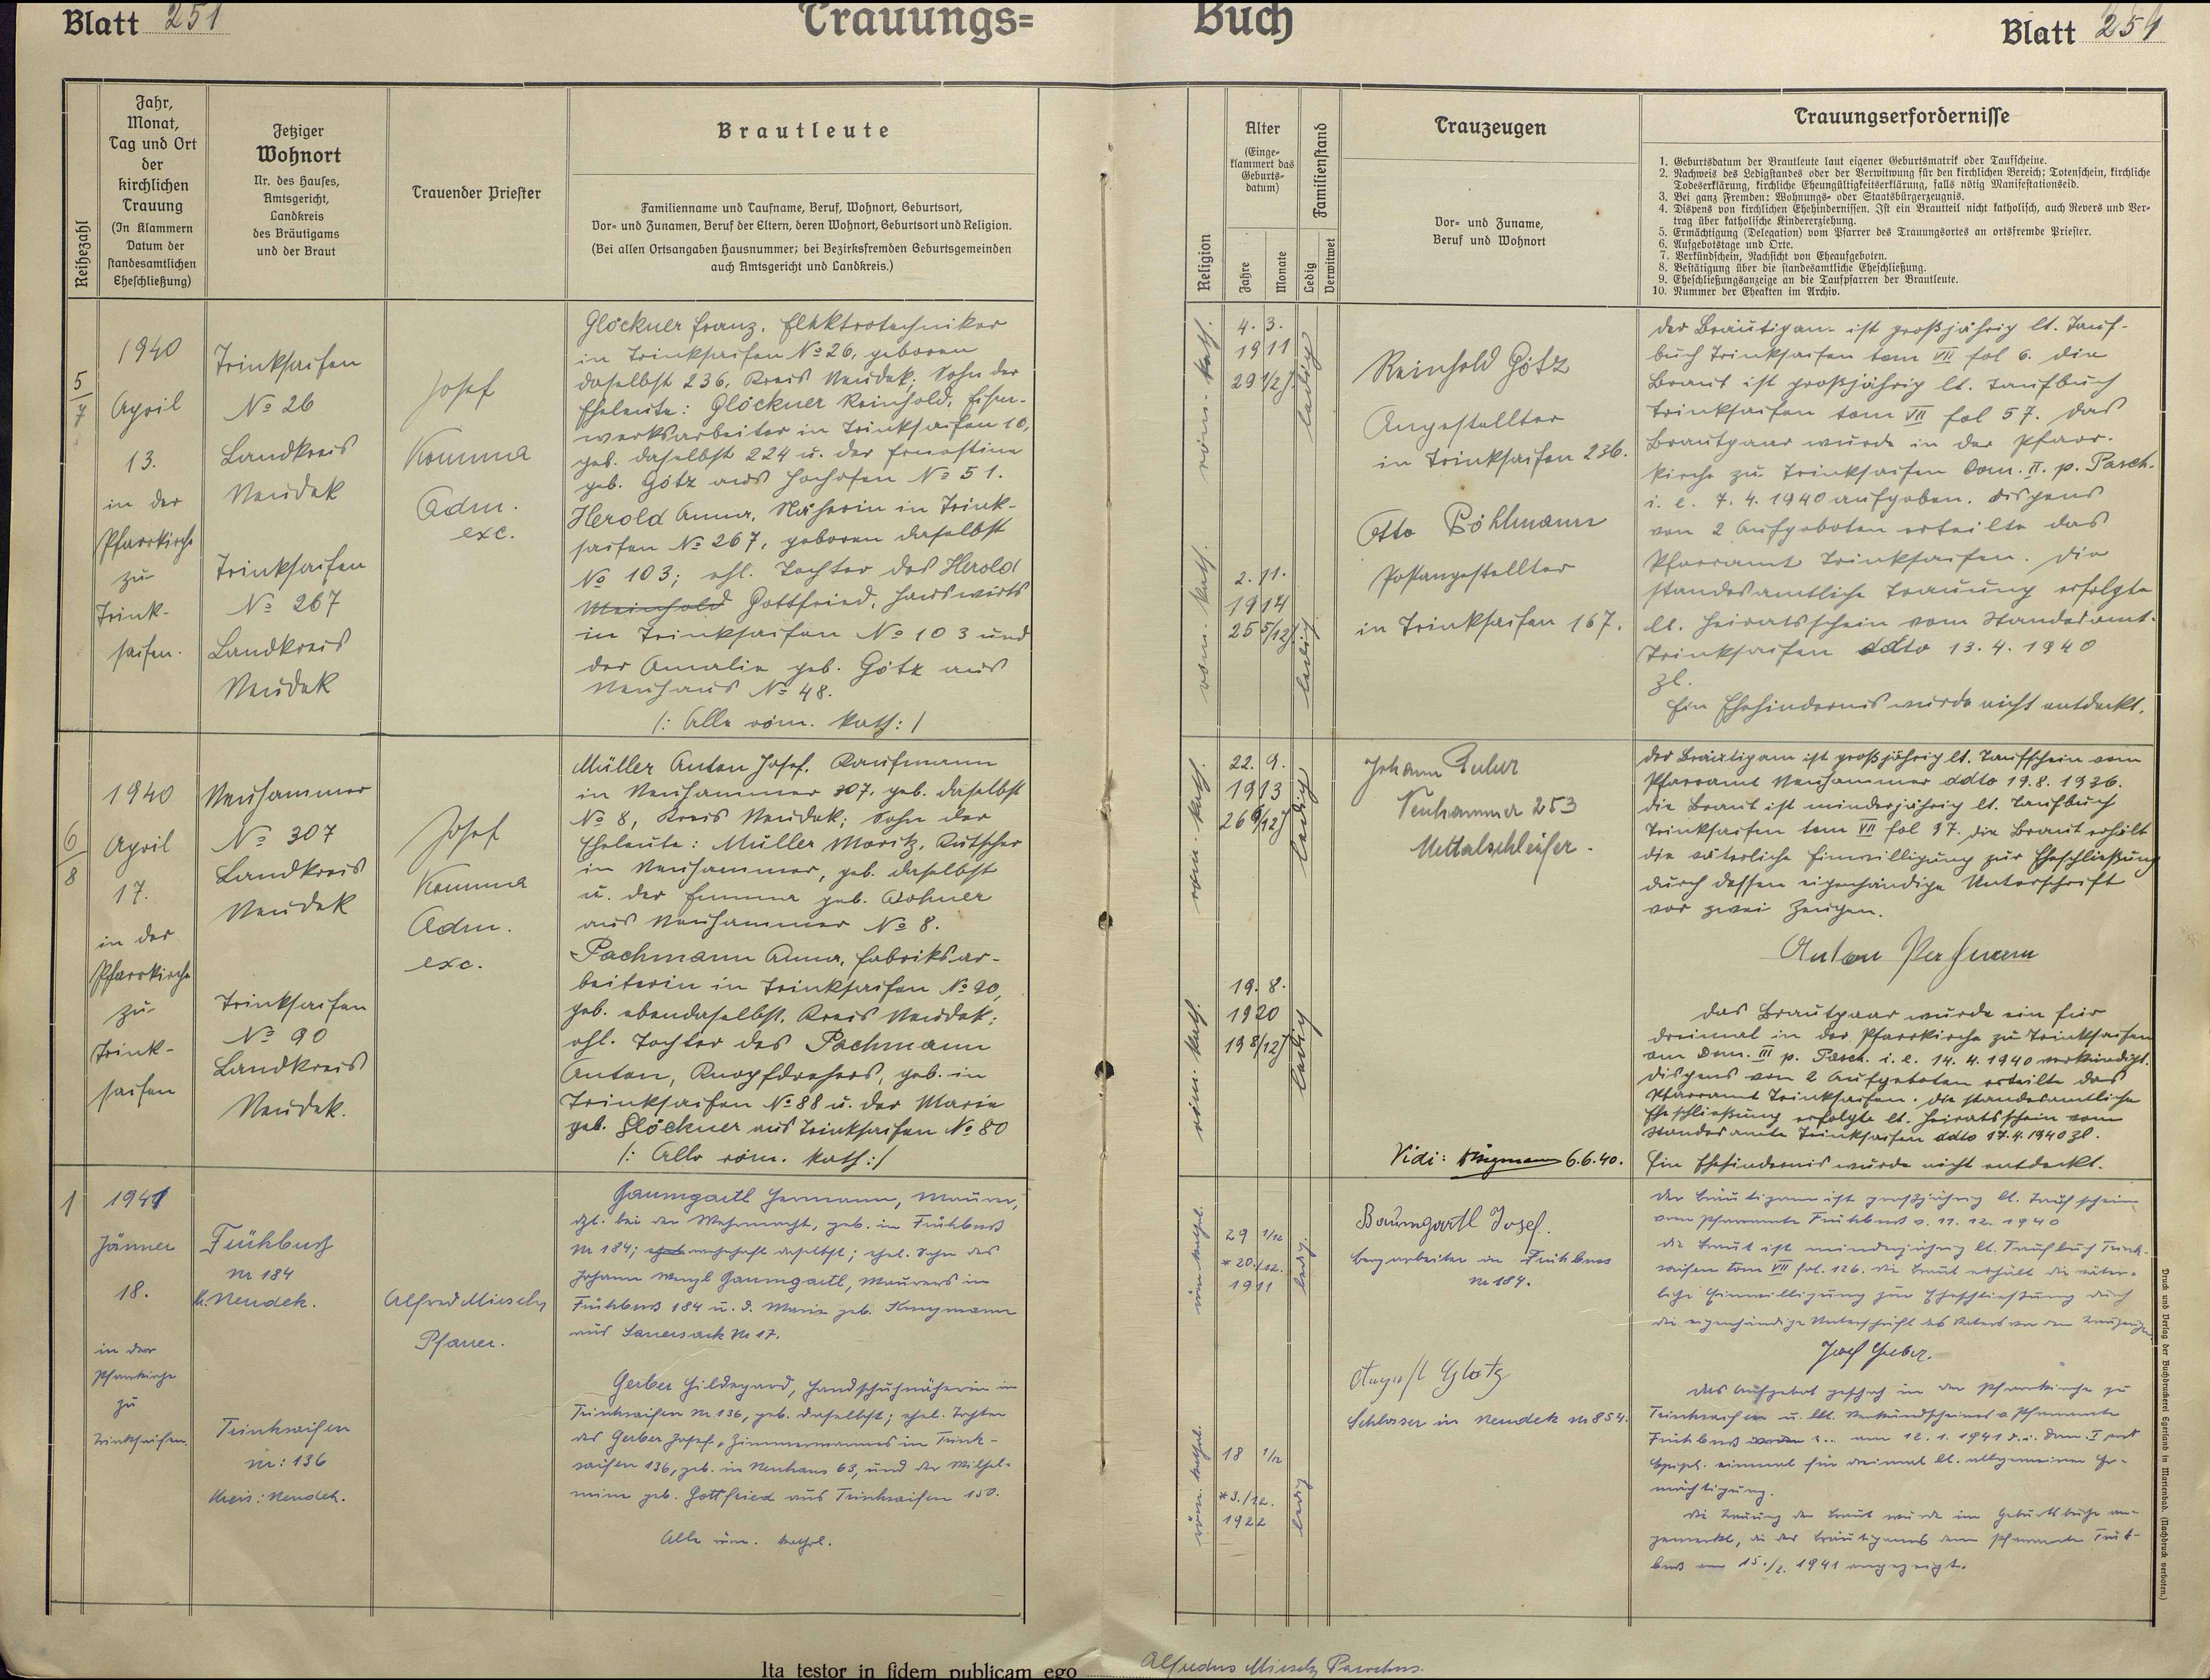 Blatt 251
Trauungs=
Buch
Blatt 251
Reihezahl
Jahr,
Monat,
Tag und Ort
der
kirchlichen
Trauung
(In Klammern
Datum der
standesamtlichen
Eheschließung)
Jetziger
Wohnort
Nr. des Hauses,
Amtsgericht,
Landkreis
des Bräutigams
und der Braut
Trauender Priester
Brautleute
Familienname und Taufname, Beruf, Wohnort, Geburtsort,
Vor- und Zunamen, Beruf der Eltern, deren Wohnort, Geburtsort und Religion.
(Bei allen Ortsangaben Hausnummer; bei Bezirksfremden Geburtsgemeinden
auch Amtsgericht und Landkreis.)
Religion
Alter
(Einge-
klammert das
Geburts-
datum)
Jahre
Monate
Familienstand
Ledig
Verwitwet
Trauzeugen
Vor- und Zuname,
Beruf und Wohnort
Trauungserfordernisse
1. Geburtsdatum der Brautleute laut eigener Geburtsmatrik oder Taufscheine.
2. Nachweis des Ledigstandes oder der Verwitwung für den kirchlichen Bereich; Totenschein, kirchliche
Todeserklärung, kirchliche Eheungültigkeitserklärung, falls nötig Manifestationseid.
3. Bei ganz Fremden: Wohnungs- oder Staatsbürgerzeugnis.
4. Dispens von kirchlichen Ehehindernissen. Ist ein Brautteil nicht katholisch, auch Revers und Ver-
trag über katholische Kindererziehung.
5. Ermächtigung (Delegation) vom Pfarrer des Trauungsortes an ortsfremde Priester.
6. Aufgebotstage und Orte.
7. Verkündschein, Nachsicht von Eheaufgeboten.
8. Bestätigung über die standesamtliche Eheschließung.
9. Eheschließungsanzeige an die Taufpfarren der Brautleute.
10. Nummer der Eheakten im Archiv.
5/7
1940
April
13.
in der
Pfarrkirche
zu
Trink-
saifen.
Trinksaifen
No 26
Landkreis
Neudek
Trinksaifen
No 267
Landkreis
Neudek
Josef
Komma
Adm.
exc.
Glöckner Franz, Elektrotechniker
in Trinksaifen No 26, geboren
daselbst 236, Kreis Neudek; Sohn der
Eheleute: Glöckner Reinhold, Eisen-
werksarbeiter in Trinksaifen 10,
geb. daselbst 224 u. der Ernestine
geb. Götz aus Hochofen No 51.
Herold Anna, Näherin in Trink-
saifen No 267, geboren daselbst
No 103; ehl. Tochter des Herold
Meinhold Gottfried, Hauswirts
in Trinksaifen No 103 und
der Amalie geb. Götz aus
Neuhaus No 48.
/: Alle röm. kath: /
röm. kath.
4. 3.
1911
29 1/2
ledig
röm. kath.
2. 11.
1914
25 5/12
ledig
Reinhold Götz
Angestellter
in Trinksaifen 236.
Otto Pöhlmann
Postangestellter
in Trinksaifen 167.
Der Bräutigam ist großjährig lt. Tauf-
buch Trinksaifen tom VII fol 6. Die
Braut ist großjährig lt. Taufbuch
Trinksaifen tom VII fol 57. Das
Brautpaar wurde in der Pfarr-
kirche zu Trinksaifen Dom. II. p. Pasch.
i. e. 7. 4. 1940 aufgeboten. Dispens
von 2 Aufgeboten erteilte das
Pfarramt Trinksaifen. Die
standesamtliche Trauung erfolgte
lt. Heiratsschein vom Standesamt
Trinksaifen ddto 13. 4. 1940
Zl.
Ein Ehehindernis wurde nicht entdeckt.
6/8
1940
April
17.
in der
Pfarrkirche
zu
Trink-
saifen
Neuhammer
No 307
Landkreis
Neudek
Trinksaifen
No 90
Landkreis
Neudek.
Josef
Komma
Adm.
exc.
Müller Anton Josef, Kaufmann
in Neuhammer 307, geb. daselbst
No 8, Kreis Neudek; Sohn der
Eheleute: Müller Moritz, Kutscher
in Neuhammer, geb. daselbst
u. der Emma geb. Dohner
aus Neuhammer No 8.
Pachmann Anna, Fabriksar-
beiterin in Trinksaifen No 90,
geb. ebendaselbst, Kreis Neudek;
ehl. Tochter des Pachmann
Anton, Knopfdrehers, geb. in
Trinksaifen No 88 u. der Marie
geb. Glöckner aus Trinksaifen No 80
/: Alle röm. kath: /
röm. kath.
22. 9.
1913
26 6/12
ledig
röm. kath.
19. 8.
1920
19 8/12
ledig
Johann
Neuhammer 253
Mettalschleifer.
Vidi: 6.6.40.
Der Bräutigam ist großjährig lt. Taufschein vom
Pfarramt Neuhammer ddto 19. 8. 1936.
Die Braut ist minderjährig lt. Taufbuch
Trinksaifen tom VII fol 97. Die Braut erhält
die väterliche Einwilligung zur Eheschließung
durch dessen eigenhändige Unterschrift
vor zwei Zeugen.
Anton
Das Brautpaar wurde ein für
dreimal in der Pfarrkirche zu Trinksaifen
am Dom. III p. Pasch. i. e. 14. 4. 1940 verkündigt.
Dispens von 2 Aufgeboten erteilte das
Pfarramt Trinksaifen. Die standesamtliche
Eheschließung erfolgte lt. Heiratsschein vom
Standesamte Trinksaifen ddto 17. 4. 1940 Zl.
Ein Ehehindernis wurde nicht entdeckt.
1
1941
Jänner
18.
in der
Pfarrkirche
zu
Trinksaifen.
Frühbuß
nr 184
K. Neudek.
Trinksaifen
nr: 136
Kreis: Neudek.
Alfred Miesch
Pfarrer.
Baumgartl Hermann, Maurer,
dzt. bei der Wehrmacht, geb. in Frühbuß
Nr 184; wohnhaft daselbst; ehel. Sohn des
Johann Wenzl Baumgartl, Maurers in
Frühbuß 184 u. d. Marie geb.
aus Sauersack Nr 17.
Gerber Hildegard, Handschuhnäherin in
Trinksaifen Nr 136, geb. daselbst; ehel. Tochter
des Gerber Josef, Zimmermannes in Trink-
saifen 136, geb. in Neuhaus 63, und der Wilhel-
mine geb. Gottfried aus Trinksaifen 150.
Alle röm. kathol.
röm. kathol.
29 1/12
* 20./12.
1911
ledig
röm. kathol.
18 1/12
* 3./12.
1922
ledig
Baumgartl Josef.
Bergarbeiter in Frühbuss
Nr 184.
August Glatz
Schlosser in Neudek Nr 854.
Der Bräutigam ist großjährig lt. Taufschein
vom Pfarramte Frühbuß v. 11. 12. 1940
Die Braut ist minderjährig lt. Taufbuch Trink-
saifen tom VII fol. 126. Die Braut erhält die väter-
liche Einwilligung zur Eheschließung durch
die eigenhändige Unterschrift des Vaters vor den Trauzeugen
Josef Gerber.
Das Aufgebot geschah in der Pfarrkirche zu
Trinksaifen u. lt. Verkündscheines v. Pfarramte
Frühbuß am 12. 1. 1941 d. i. Dom. I post
Epiph. einmal für dreimal lt. allgemeiner Er-
mächtigung.
Die Trauung der Braut wurde im Geburtsbuche an-
gemerkt, die des Bräutigams dem Pfarramte Früh-
buß am 15./2. 1941 angezeigt.
Druck und Verlag der Buchdruckerei Egerland in Marienbad. (Nachdruck verboten.)
Ita testor in fidem publicam ego Alfredus Miesch Parochus.